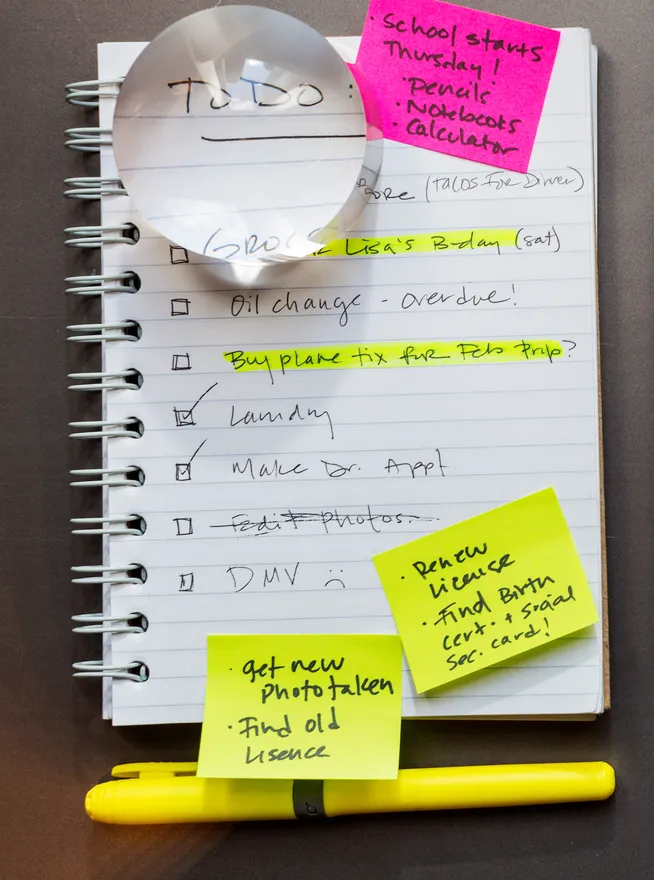 To Do:
• School starts
Thursday!
• Pencils
• Notebooks
• Calculator
(Tacos For Dinner)
Lisa's B-day (sat)
Oil change - overdue!
Buy plane tix for Feb Trip?
Laundry
Make Dr. Appt
Edit photos.
DMV :(
• Renew
license
• Find Birth
cert. + social
sec. card!
• get new
photo taken
• Find old
lisence